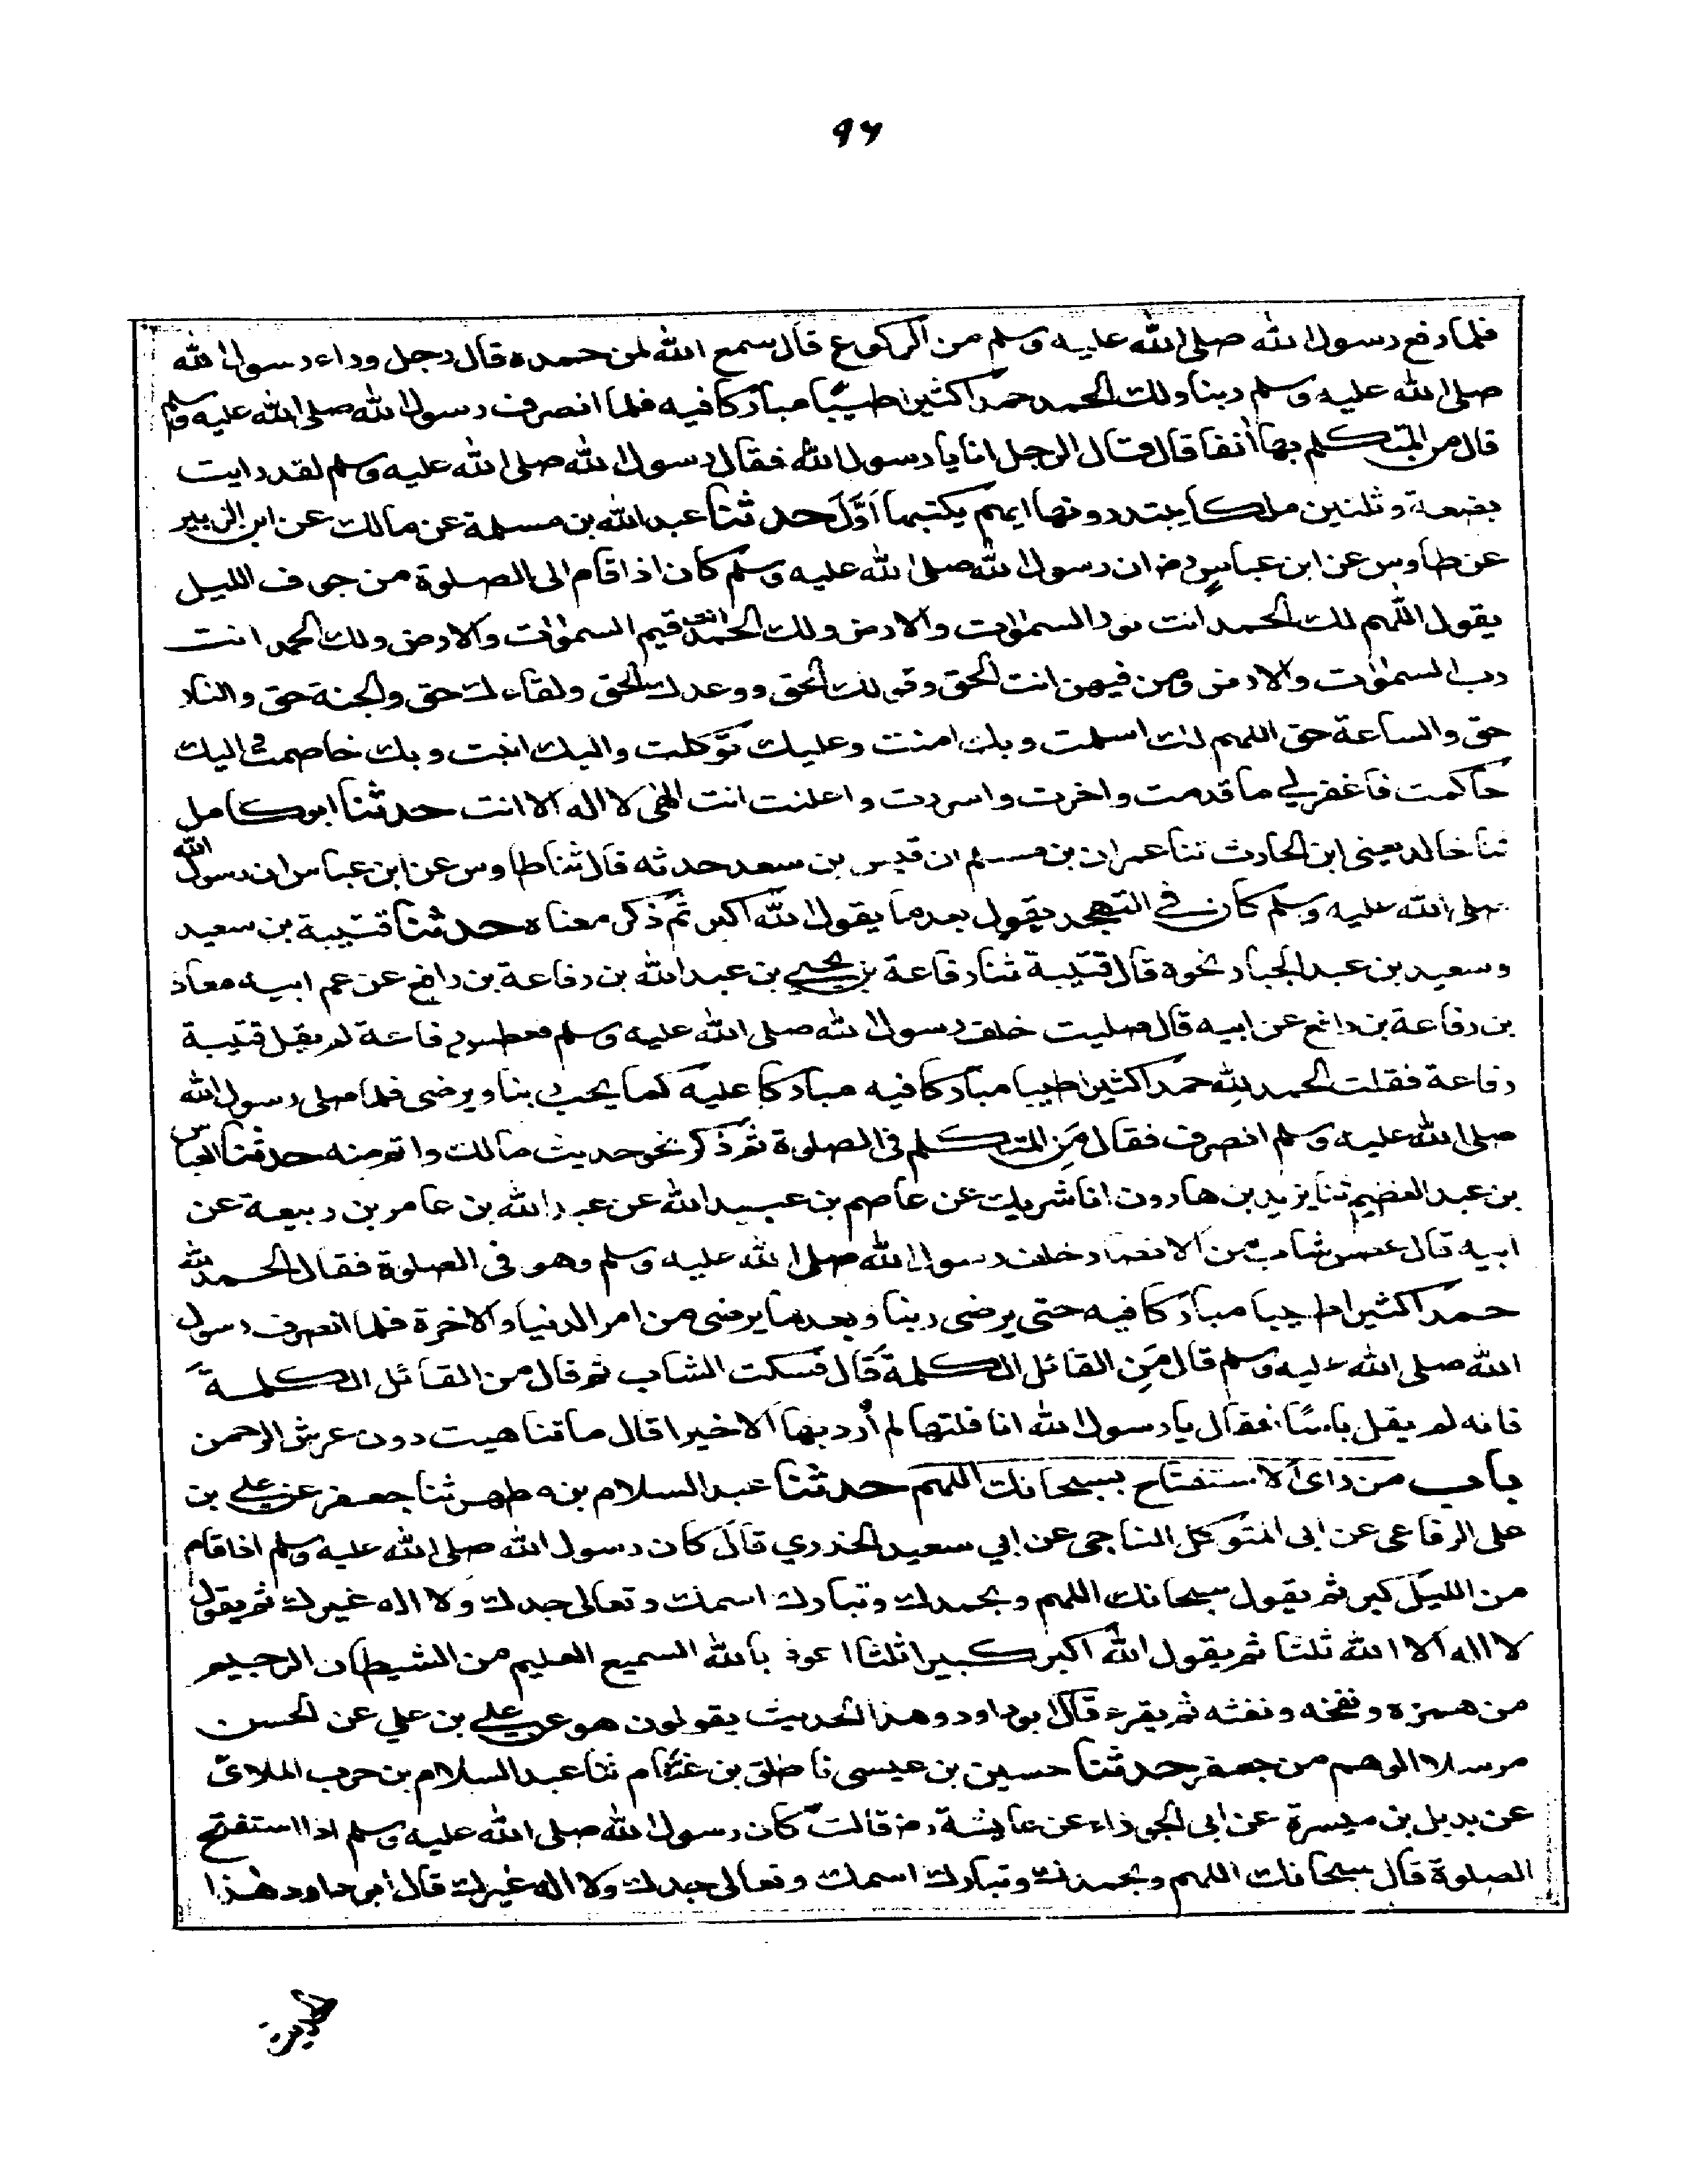 ٩٦
فلما رفع رسول الله صلى الله عليه وسلم من الركوع قال سمع الله لمن حمده قال رجل وراء رسول الله
صلى الله عليه وسلم ربنا ولك الحمد حمدا كثيرا طيبا مباركا فيه فلما انصرف رسول الله صلى الله عليه وسلم
قال من المتكلم بها أنفا قال فقال الرجل انا يا رسول الله فقال رسول الله صلى الله عليه وسلم لقد رايت
بضعة وثلثين ملكا يبتدرونها ايهم يكتبها أوّل حدثنا عبد الله بن مسلمة عن مالك عن ابى الزبير
عن طاوس عن ابن عباسٍ رض ان رسول الله صلى الله عليه وسلم كان اذا قام الى الصلوة من جوف الليل
يقول اللهم لك الحمد انت نور السموات والارض ولك الحمد انت قيم السموات والارض ولك الحمد انت
رب السموات والارض ومن فيهن انت الحق وقولك الحق ووعدك الحق ولقاءك حق والجنة حق والنار
حق والساعة حق اللهم لك اسلمت وبك امنت وعليك توكلت واليك انبت وبك خاصمت واليك
حاكمت فاغفر لي ما قدمت واخرت واسررت واعلنت انت الهى لا اله الا انت حدثنا ابو كامل
ثنا خالد يعنى ابن الحارث ثنا عمران بن مسلم ان قيس بن سعد حدثه قال ثنا طاوس عن ابن عباس ان رسول الله
صلى الله عليه وسلم كان في التهجد يقول بعد ما يقول الله اكبر ثم ذكر معناه حدثنا قتيبة بن سعيد
وسعيد بن عبد الجبار نحوه قال قتيبة ثنا رفاعة بن يحيي بن عبد الله بن رفاعة بن رافع عن عم ابيه معاذ
بن رفاعة بن رافع عن ابيه قال صليت خلف رسول الله صلى الله عليه وسلم فعطس رفاعة لم يقل قتيبة
رفاعة فقلت الحمد لله حمدا كثيرا طيبا مباركا فيه مباركا عليه كما يحب ربنا ويرضى فلما صلى رسول الله
صلى الله عليه وسلم انصرف فقال مَنِ المتكلم فى الصلوة ثم ذكر نحو حديث مالك واتم منه حدثنا العباس
بن عبد العظيم ثنا يزيد بن هارون انا شريك عن عاصم بن عبيد الله عن عبد الله بن عامر بن ربيعة عن
ابيه قال عطس شاب من الانصار خلف رسول الله صلى الله عليه وسلم وهو فى الصلوة فقال الحمد لله
حمدا كثيرا طيبا مباركا فيه حتى يرضى ربنا وبعد ما يرضى من امر الدنيا والاخرة فلما انصرف رسول
الله صلى الله عليه وسلم قال مَنِ القائل الكلمة قال فسكت الشاب ثم قال من القائل الكلمة
فانه لم يقل باسًا فقال يا رسول الله انا قلتها لم أُرد بها الا خيرا قال ما تناهيت دون عرش الرحمن
باب من راى الاستفتاح بسبحانك اللهم حدثنا عبد السلام بن مطهر ثنا جعفر عن علي بن
على الرفاعى عن ابى المتوكل الناجى عن ابي سعيد الخدري قال كان رسول الله صلى الله عليه وسلم اذا قام
من الليل كبر ثم يقول سبحانك اللهم وبحمدك وتبارك اسمك وتعالى جدك ولا اله غيرك ثم يقول
لا اله الا الله ثلثا ثم يقول الله اكبر كبيرا ثلثا اعوذ بالله السميع العليم من الشيطان الرجيم
من همزه ونفخه ونفثه ثم يقرء قال ابو داود وهذا الحديث يقولون هو عن علي بن علي عن الحسن
مرسلا الوهم من جعفر حدثنا حسين بن عيسى نا طلق بن غنام ثنا عبد السلام بن حرب الملائى
عن بديل بن ميسرة عن ابى الجوزاء عن عايشة رض قالت كان رسول الله صلى الله عليه وسلم اذا استفتح
الصلوة قال سبحانك اللهم وبحمدك وتبارك اسمك وتعالى جدك ولا اله غيرك قال ابو داود هذا